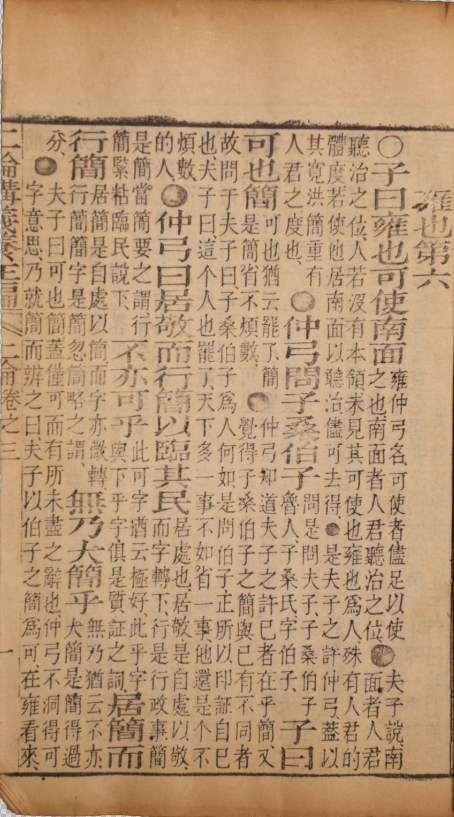 雍也第六
○子曰雍也可使南面 雍仲弓名可使者儘足以使之也南面者人君聽治之位 夫子說南面者人君
聽治之位人若沒有本領未見其可使也雍也為人殊有人君的
體度若使他居南面以聽治儘可去得 是夫子之許仲弓蓋以
其寬洪簡重有人君之度也 仲弓問子桑伯子 問是問夫子子桑伯子魯人子桑氏字伯子 子曰
可也簡 可也猶云罷了簡是簡省不煩數 仲弓知道夫子之許已者在乎簡又覺得子桑伯子之簡與已有不同者
故問于夫子曰子桑伯子為人何如是問伯子正所以印証自已
也夫子曰這個人也罷了天下多一事不如省一事他還是个不
煩數的人 仲弓曰居敬而行簡以臨其民 居處也居敬是自處以敬而字轉下行是行政事簡
是簡當簡要之謂行簡緊粘臨民說下 不亦可乎 此可字猶云極好此乎字與下乎字俱是質証之詞 居簡而
行簡 居簡是自處以簡而字亦微轉行簡簡字是簡忽簡略之謂 無乃大簡乎 無乃猶云不亦大簡是簡得過
分 夫子曰可也簡蓋僅可而有所未盡之辭也仲弓不洞得可
字意思乃就簡而辨之曰夫子以伯子之簡為可在雍看來
二論講義卷三 二論卷之三 一